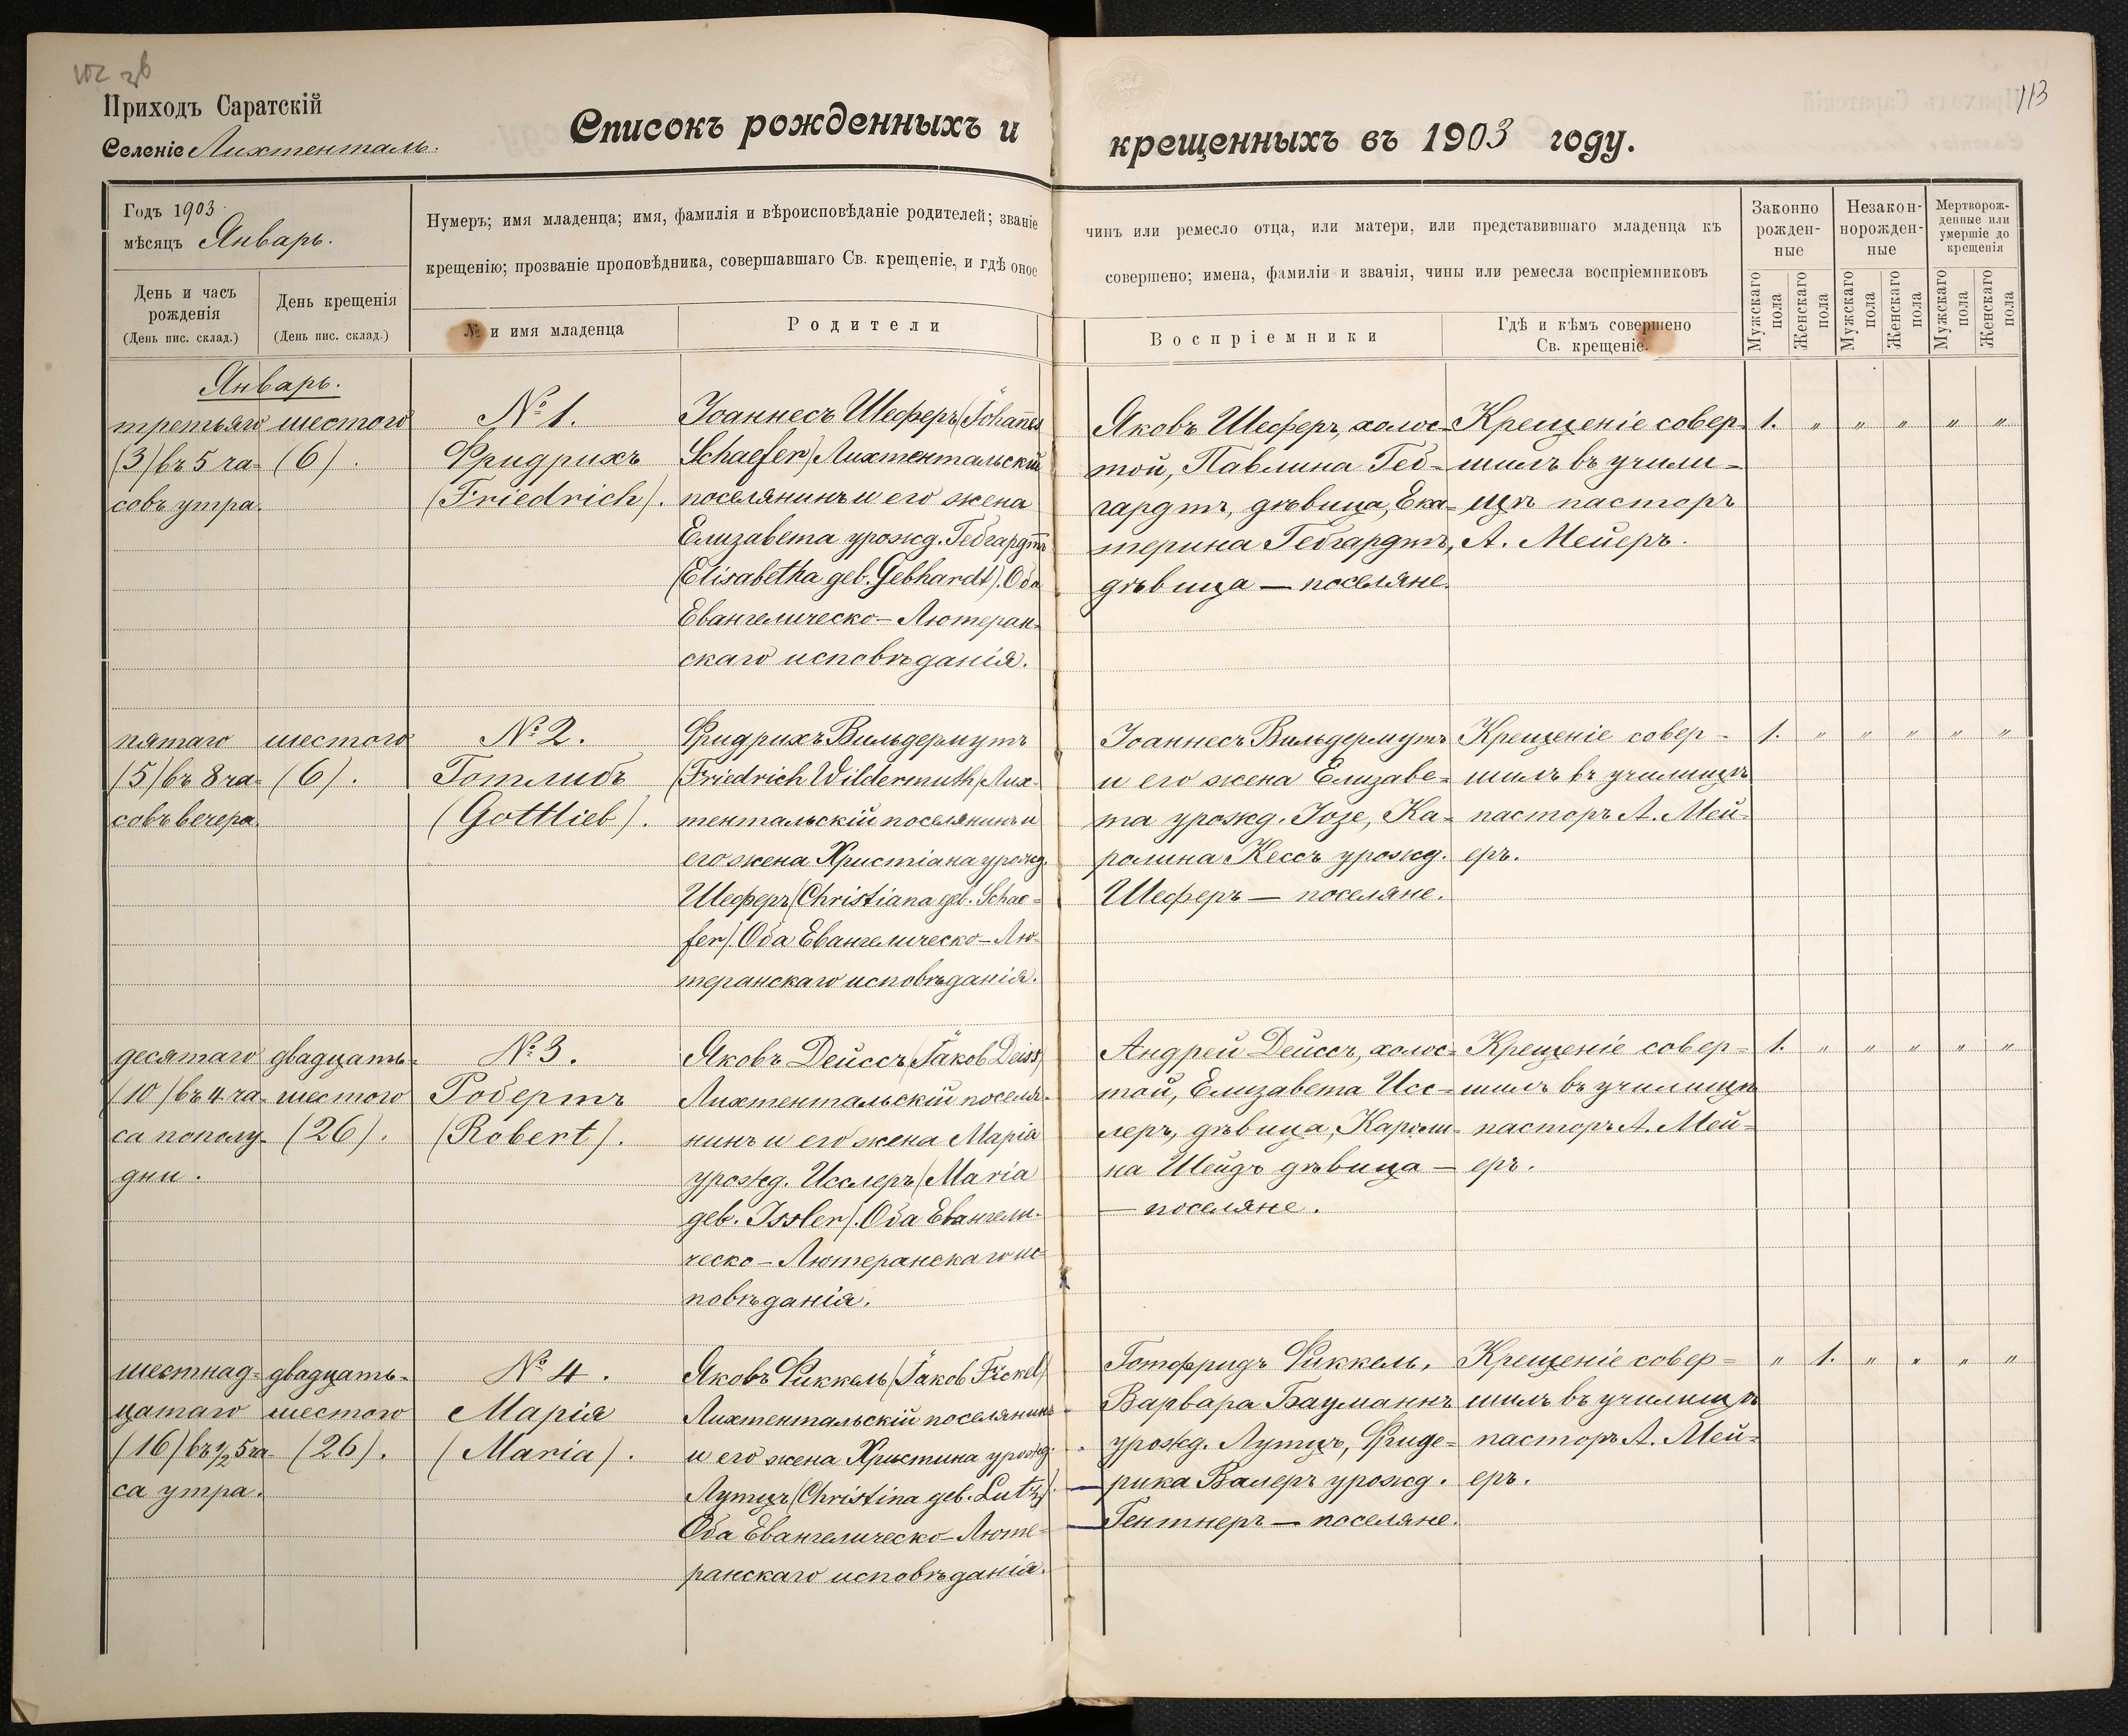 113
Приходъ Саратскій
Селеніе Лихтенталь.
Списокъ рожденныхъ и крещенныхъ въ 1903 году.
Годъ 1903
мѣсяцъ Январь.
День и часъ
рожденія
(День пис. склад.)
День крещенія
(День пис. склад.)
Нумеръ; имя младенца; имя, фамилія и вѣроисповѣданіе родителей; званіе
чинъ или ремесло отца, или матери, или представившаго младенца къ
крещенію; прозваніе проповѣдника, совершавшаго Св. крещеніе, и гдѣ оное
совершено; имена, фамиліи и званія, чины или ремесла воспріемниковъ
№ и имя младенца
Родители
Воспріемники
Гдѣ и кѣмъ совершено
Св. крещеніе.
Законно
рожден-
ные
Незакон-
норожден-
ные
Мертворож-
денные или
умершіе до
крещенія
Мужскаго
пола
Женскаго
пола
Мужскаго
пола
Женскаго
пола
Мужскаго
пола
Женскаго
пола
Январь.
третьяго
(3) въ 5 ча-
совъ утра.
шестого
(6).
№ 1.
Фридрихъ
(Friedrich).
Іоаннесъ Шеферъ (Johannes
Schaefer) Лихтентальскій
поселянинъ и его жена
Елизавета урожд. Гебгардтъ
(Elisabetha geb. Gebhardt). Оба
Евангелическо-Лютеран-
скаго исповѣданія.
Яковъ Шеферъ, холос-
той, Павлина Геб-
гардтъ, дѣвица, Ека-
терина Гебгардтъ,
дѣвица — поселяне.
Крещеніе совер-
шилъ въ учили-
щѣ пасторъ
А. Мейеръ.
1. " " " " "
пятаго
(5) въ 8 ча-
совъ вечера.
шестого
(6).
№ 2.
Готлибъ
(Gottlieb).
Фридрихъ Вильдермутъ
(Friedrich Wildermuth) Лих-
тентальскій поселянинъ и
его жена Христіана урожд.
Шеферъ (Christiana geb. Schae-
fer). Оба Евангелическо-Лю-
теранскаго исповѣданія.
Іоаннесъ Вильдермутъ
и его жена Елизаве-
та урожд. Іозе, Ка-
ролина Кессъ урожд.
Шеферъ — поселяне.
Крещеніе совер-
шилъ въ училищѣ
пасторъ А. Мей-
еръ.
1. " " " " "
десятаго
(10) въ 4 ча-
са пополу-
дни.
двадцать-
шестого
(26).
№ 3.
Робертъ
(Robert).
Яковъ Дейссъ (Jakob Deiss)
Лихтентальскій поселя-
нинъ и его жена Марія
урожд. Исслеръ (Maria
geb. Issler). Оба Евангели-
ческо-Лютеранскаго ис-
повѣданія.
Андрей Дейссъ, холос-
той, Елизавета Исс-
леръ, дѣвица, Кароли-
на Шейдъ дѣвица —
— поселяне.
Крещеніе совер-
шилъ въ училищѣ
пасторъ А. Мей-
еръ.
1. " " " " "
шестнад-
цатаго
(16) въ ½ 5 ча-
са утра.
двадцать-
шестого
(26).
№ 4.
Марія
(Maria).
Яковъ Фиккель (Jakob Fickel)
Лихтентальскій поселянинъ
и его жена Христина урожд.
Лутцъ (Christina geb. Lutz).
Оба Евангелическо-Люте-
ранскаго исповѣданія.
Готфридъ Фиккель,
Варвара Бауманнъ
урожд. Лутцъ, Фриде-
рика Валеръ урожд.
Гентнеръ — поселяне.
Крещеніе совер-
шилъ въ училищѣ
пасторъ А. Мей-
еръ.
" 1. " " " "